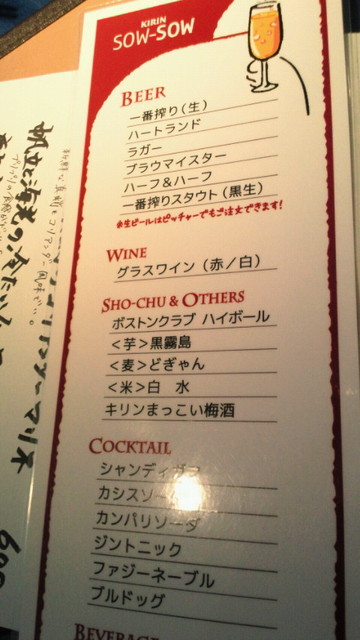 KIRIN
SOW-SOW
BEER
一番搾り(生)
ハートランド
ラガー
ブラウマイスター
ハーフ&ハーフ
一番搾りスタウト(黒生)
※生ビールはピッチャーでもご注文できます!
WINE
グラスワイン(赤/白)
SHO-CHU & OTHERS
ボストンクラブ ハイボール
<芋>黒霧島
<麦>どぎゃん
<米>白 水
キリンまっこい梅酒
COCKTAIL
シャンディガフ
カシスソーダ
カンパリソーダ
ジントニック
ファジーネーブル
ブルドッグ
BEVERAGE